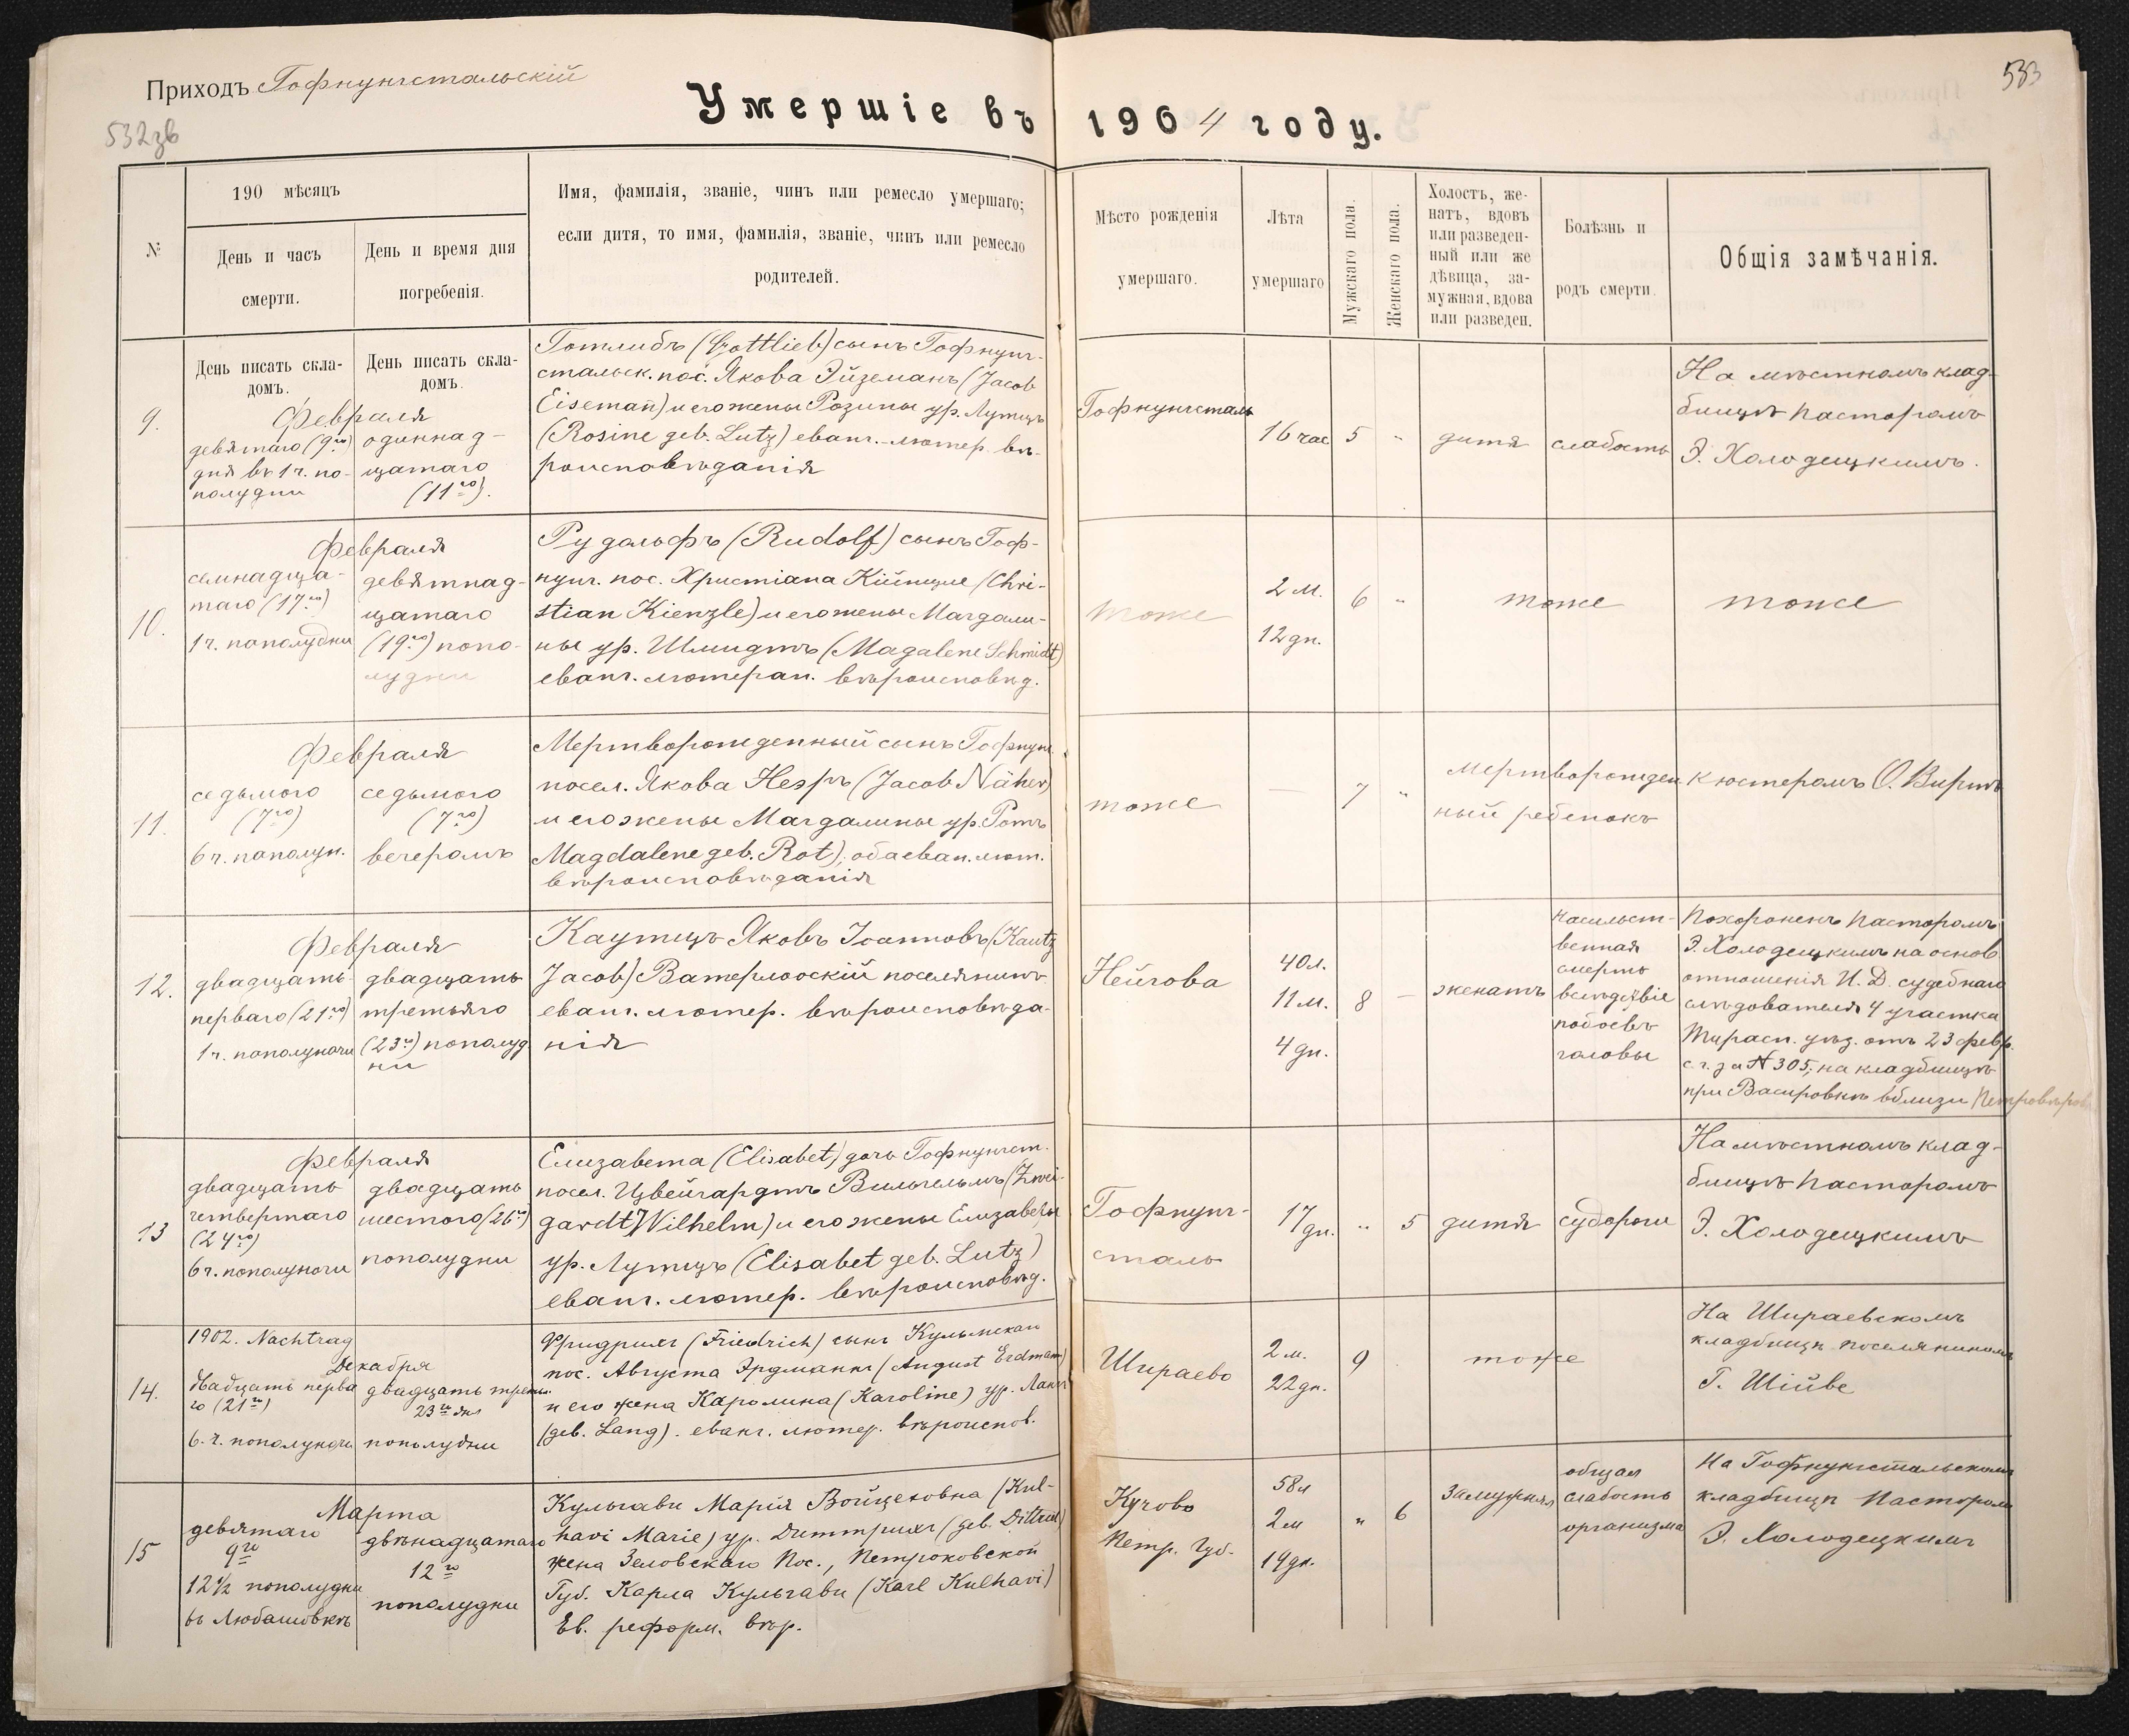 Приходъ Гофнунгстальскій
532зв
533
Умершіе въ 1904 году.
№
190 мѣсяцъ
День и часъ
смерти.
День и время дня
погребенія.
Имя, фамилія, званіе, чинъ или ремесло умершаго;
если дитя, то имя, фамилія, званіе, чинъ или ремесло
родителей.
Мѣсто рожденія
умершаго.
Лѣта
умершаго
Мужскаго пола.
Женскаго пола.
Холостъ, же-
натъ, вдовъ
или разведен-
ный или же
дѣвица, за-
мужная, вдова
или разведен.
Болѣзнь и
родъ смерти.
Общія замѣчанія.
День писать скла-
домъ.
День писать скла-
домъ.
9.
Февраля
девятаго (9го)
дня въ 1 ч. по-
полудни
одиннад-
цатаго
(11го).
Готлибъ (Gottlieb) сынъ Гофнунг-
стальск. пос. Якова Эйземанъ (Jacob
Eiseman̄) и его жены Розины ур. Лутцъ
(Rosine geb. Lutz) еванг.-лютер. вѣ-
роисповѣданія
Гофнунгсталь
16 час
5
"
дитя
слабость
На мѣстномъ клад-
бищѣ Пасторомъ
Э. Холодецкимъ.
10.
Февраля
семнадца-
таго (17го)
1 ч. пополудни
девятнад-
цатаго
(19го) попо-
лудни
Рудольфъ (Rudolf) сынъ Гоф-
нунг. пос. Христіана Кійнцле (Chri-
stian Kienzle) и его жены Магдали-
ны ур. Шмидтъ (Magalene Schmidt)
еванг. лютеран. вѣроисповѣд.
тоже
2 м.
12 дн.
6
"
тоже
тоже
11.
Февраля
седьмого
(7го)
6 ч. пополудн.
седьмого
(7го)
вечеромъ
Мертворожденный сынъ Гофнунг.
посел. Якова Неэръ (Jacob Näher)
и его жены Магдалины ур. Ротъ
Magdalene geb. Rot), оба еван. лют.
вѣроисповѣданія
тоже
—
7
"
Мертворожден
ный ребенокъ
Кюстеромъ О. Виртъ
12.
Февраля
двадцать
перваго (21го)
1 ч. пополуночи
двадцать
третьяго
(23го) пополуд
ни
Каутцъ Яковъ Іоанновъ (Kautz
Jacob) Ватерлооскій поселянинъ
еванг. лютер. вѣроисповѣда-
нія
Нейгова
40 л.
11 м.
4 дн.
8
—
женатъ
насильст-
венная
смерть
вслѣдствіе
побоевъ
головы
Похороненъ Пасторомъ
Э. Холодецкимъ на основ.
отношенія И. Д. судебнаго
слѣдователя 4 участка
Тирасп. уѣз. отъ 23 февр.
с. г. за № 305, на кладбищѣ
при Васировкѣ вблизи
13
Февраля
двадцать
четвертаго
(24го)
6 ч. пополуночи
двадцать
шестого (26го)
пополудни
Елизавета (Elisabet) дочь Гофнунгст.
посел. Цвейгардтъ Вильгельмъ (Zwei-
gardt Wilhelm) и его жены Елизаветы
ур. Лутцъ (Elisabet geb. Lutz)
еванг. лютер. вѣроисповѣд.
Гофнунг-
сталь
17
дн.
"
5
дитя
судороги
На мѣстномъ клад-
бищѣ Пасторомъ
Э. Холодецкимъ
14.
1902. Nachtrag
Декабря
двадцать перва
го (21го)
6. ч. пополуночи
двадцать треть.
23го дня
пополудни
Фридрихъ (Friedrich) сынъ Кульмскаго
пос. Августа Эрдманнъ (August Erdmann)
и его жена Каролина (Karoline) ур. Лангъ
(geb. Lang). еванг. лютер. вѣроиспов.
Шираево
2 м.
22 дн.
9
тоже
На Шираевскомъ
кладбищѣ поселяниномъ
Г. Шійве
15
Марта
девятаго
9го
12½ пополудни
въ Любашовкѣ
двѣнадцатаго
12го
пополудни
Кульгави Марія Войцеховна (Kul-
havi Marie) ур. Диттрихъ (geb. Dittrich)
жена Зеловскаго Пос., Петроковской
Губ. Карла Кульгави (Karl Kulhavi)
Ев. реформ. вѣр.
Кучово
Петр. Губ.
58 л
2 м
19 дн.
"
6
Замужняя
общая
слабость
организма
На Гофнунгстальскомъ
кладбищѣ Пасторомъ
Э. Холодецкимъ